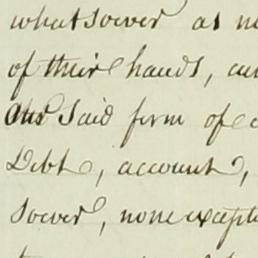 whatsoever as
of their hands,
Said form of
Debt, account,
soever, none